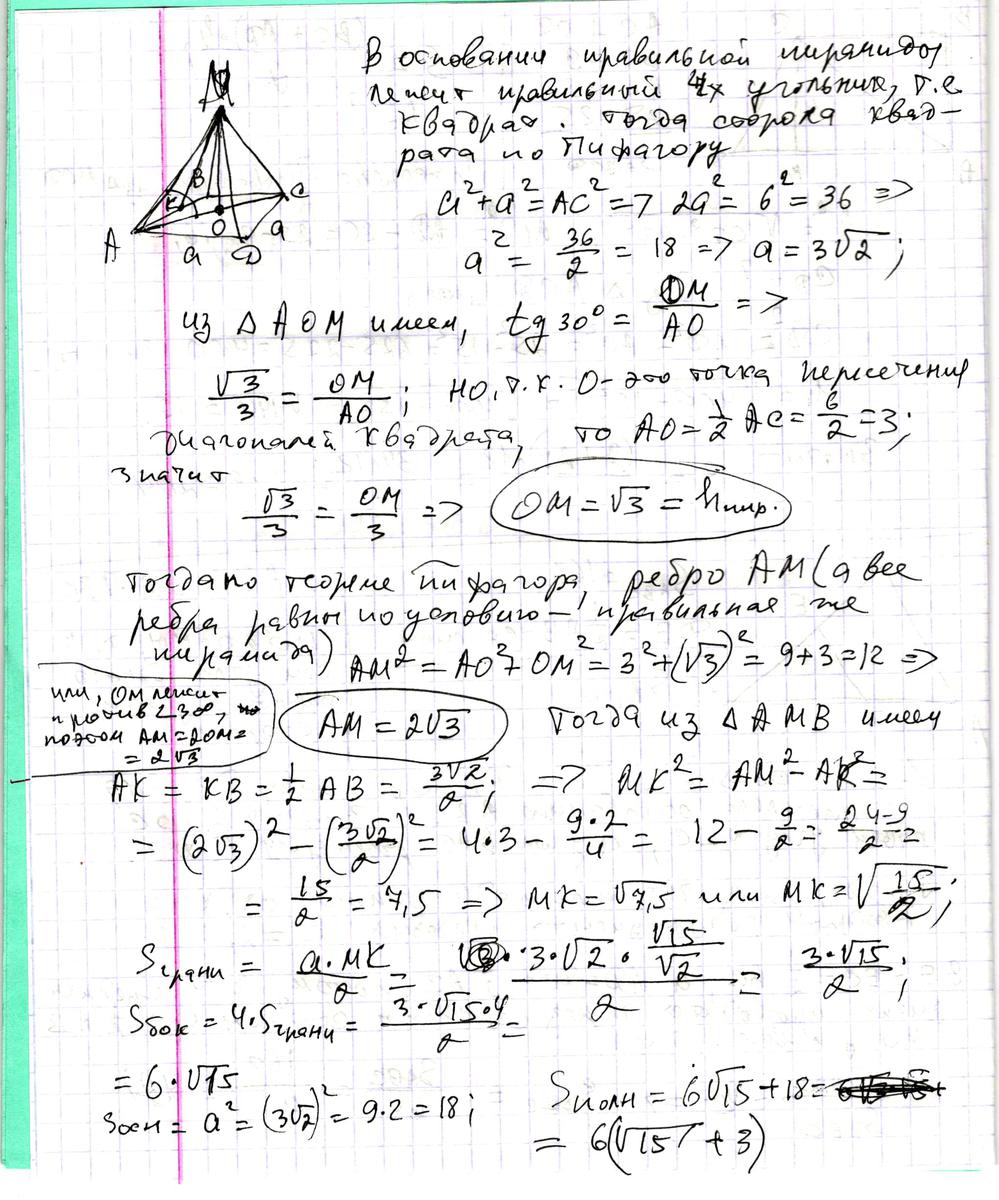 В основании правильной пирамиды
лежит правильный 4х угольник, т.е
квадрат. Тогда сторона квад-
рата по Пифагору
a²+a²=AC² => 2a²= 6²= 36 =>
a² = 36/2 = 18 => a = 3√2;
M
B
C
K
A
O
a
a
D
из △ AOM имеем, tg 30° = OM/AO =>
√3/3 = OM/AO; но, т.к. O- это точка пересечения
диагоналей квадрата, то AO= 1/2 AC = 6/2 =3;
значит
√3/3 = OM/3 => OM = √3 = hпир.
Тогда по теореме Пифагора, ребро AM (а все
ребра равны по условию - правильная же
пирамида) AM² = AO²+ OM² = 3²+(√3)² = 9+3=12 =>
или, OM лежит
против ∠30°,
поэтом AM=2OM=
= 2√3
AM = 2√3
Тогда из △ AMB имеем
AK = KB = 1/2 AB = 3√2/2; => MK² = AM² - AK² =
= (2√3)² - (3√2/2)² = 4·3 - 9·2/4 = 12 - 9/2 = 24-9/2 =
= 15/2 = 7,5 => MK = √7,5 или MK = √15/2;
Sграни = a·MK/2 = 3·√2·√15/√2/2 = 3·√15/2;
Sбок = 4·Sграни = 3·√15·4/2 =
= 6·√15
Sосн = a² = (3√2)² = 9·2 = 18;
Sполн = 6√15 + 18 =
= 6(√15 + 3)